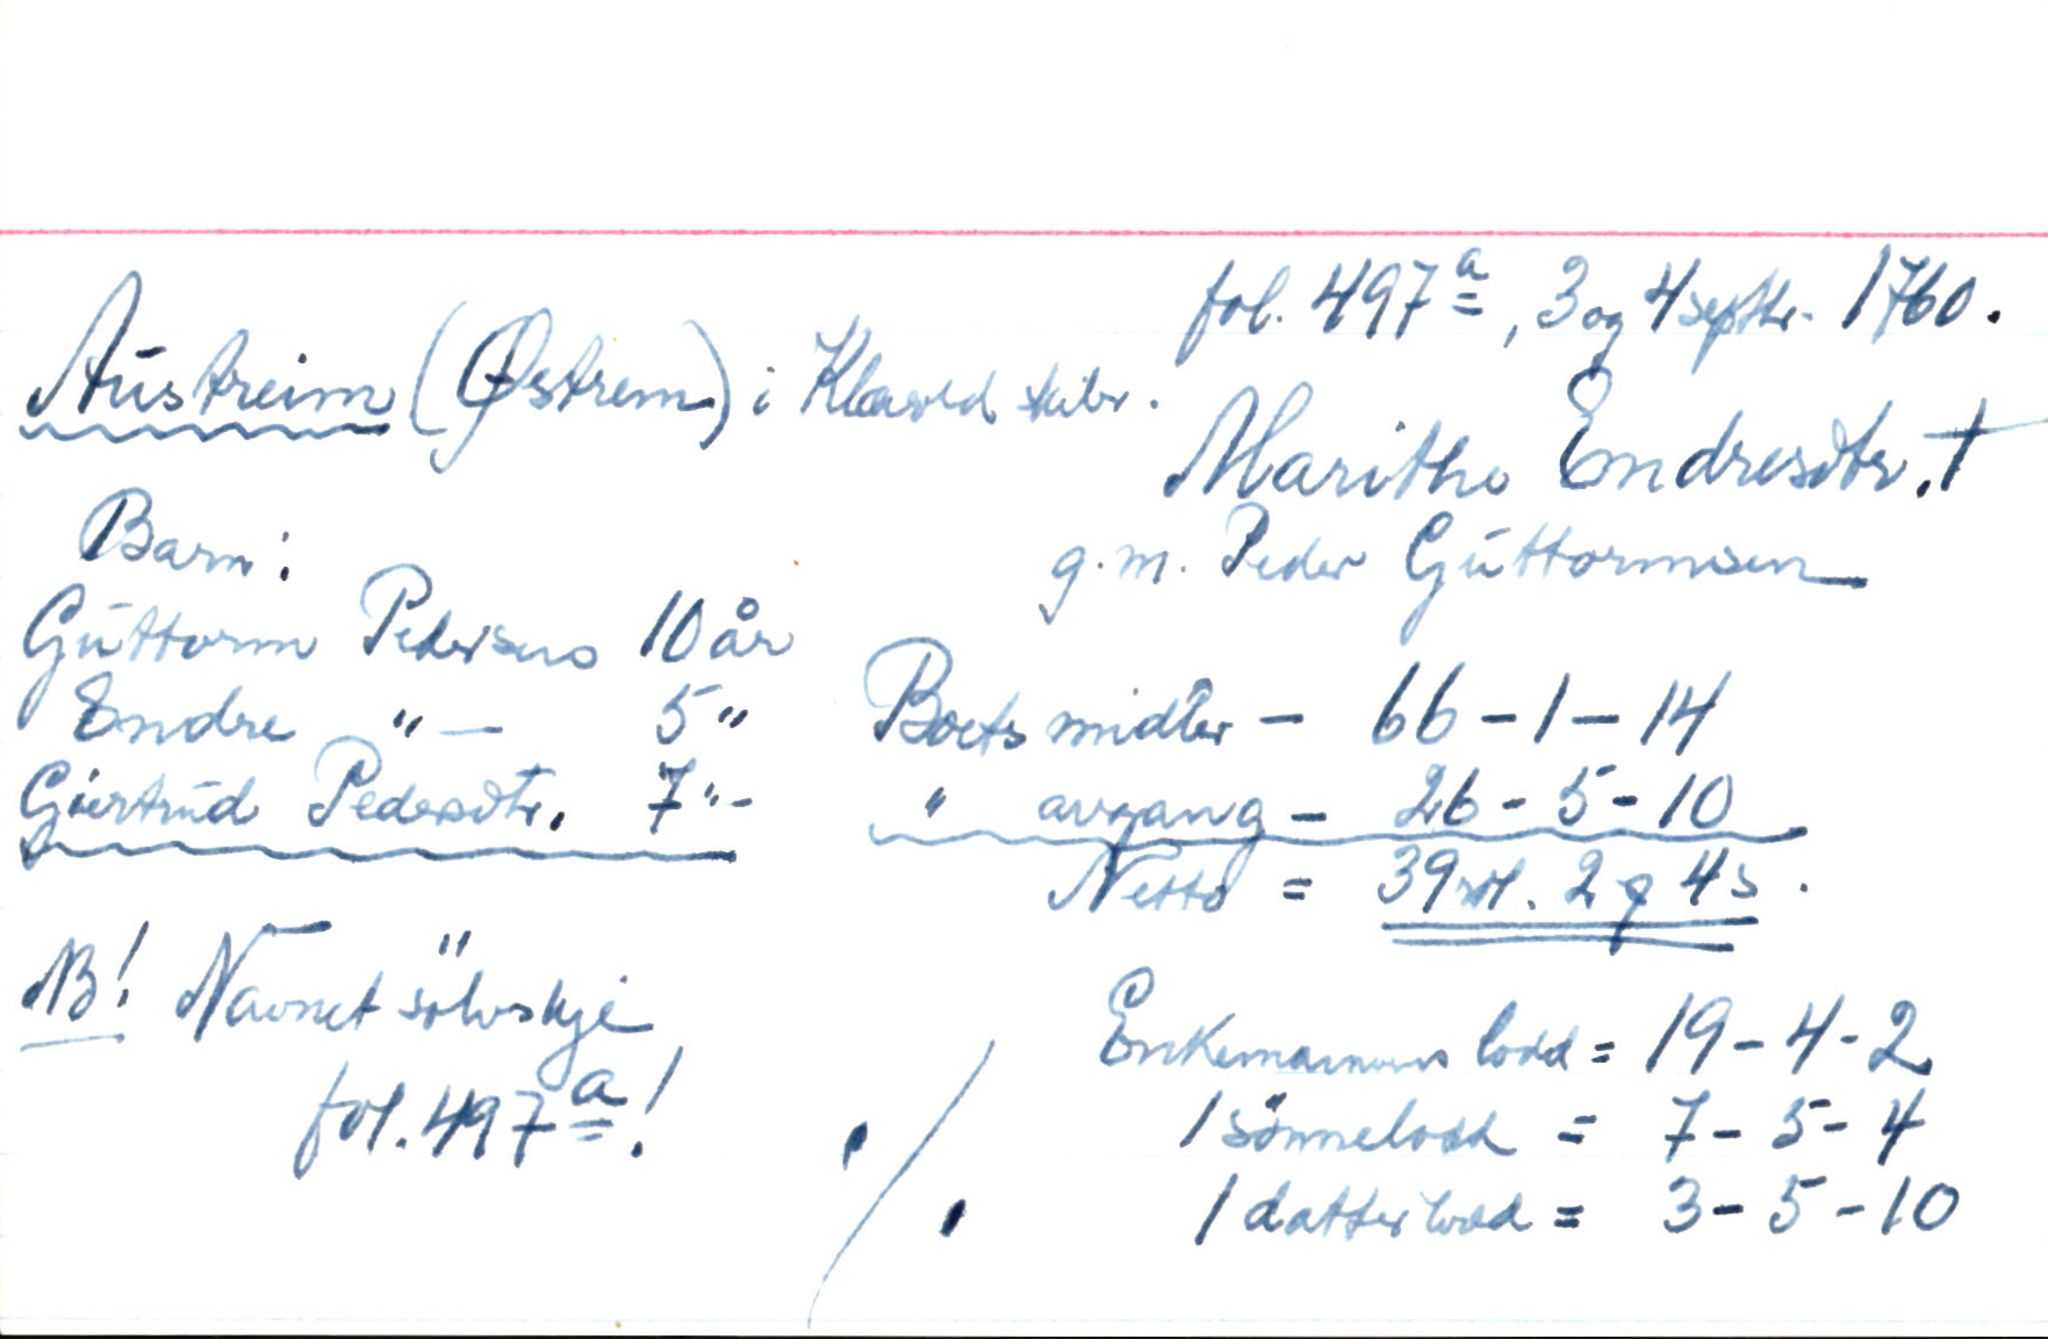 fol. 497 a, 3 og 4 septbr. 1760.
Austreim (Østrem) i Klævold skibr.
Marithe Endresdtr. †
g. m. Peder Guttormsen
Barn:
Guttorm Pedersens 10 år
Endre " — 5 "
Giertrud Pedersdtr. 7 " -
Boets midler - 66 - 1 - 14
" avgang - 26 - 5 - 10
Netto = 39 rdl. 2 q 4 s.
NB! Navnet sölvskje
fol. 497 a!
Enkemannens lodd = 19 - 4 - 2
1 sönnelodd = 7 - 5 - 4
1 datterlodd = 3 - 5 - 10
./.